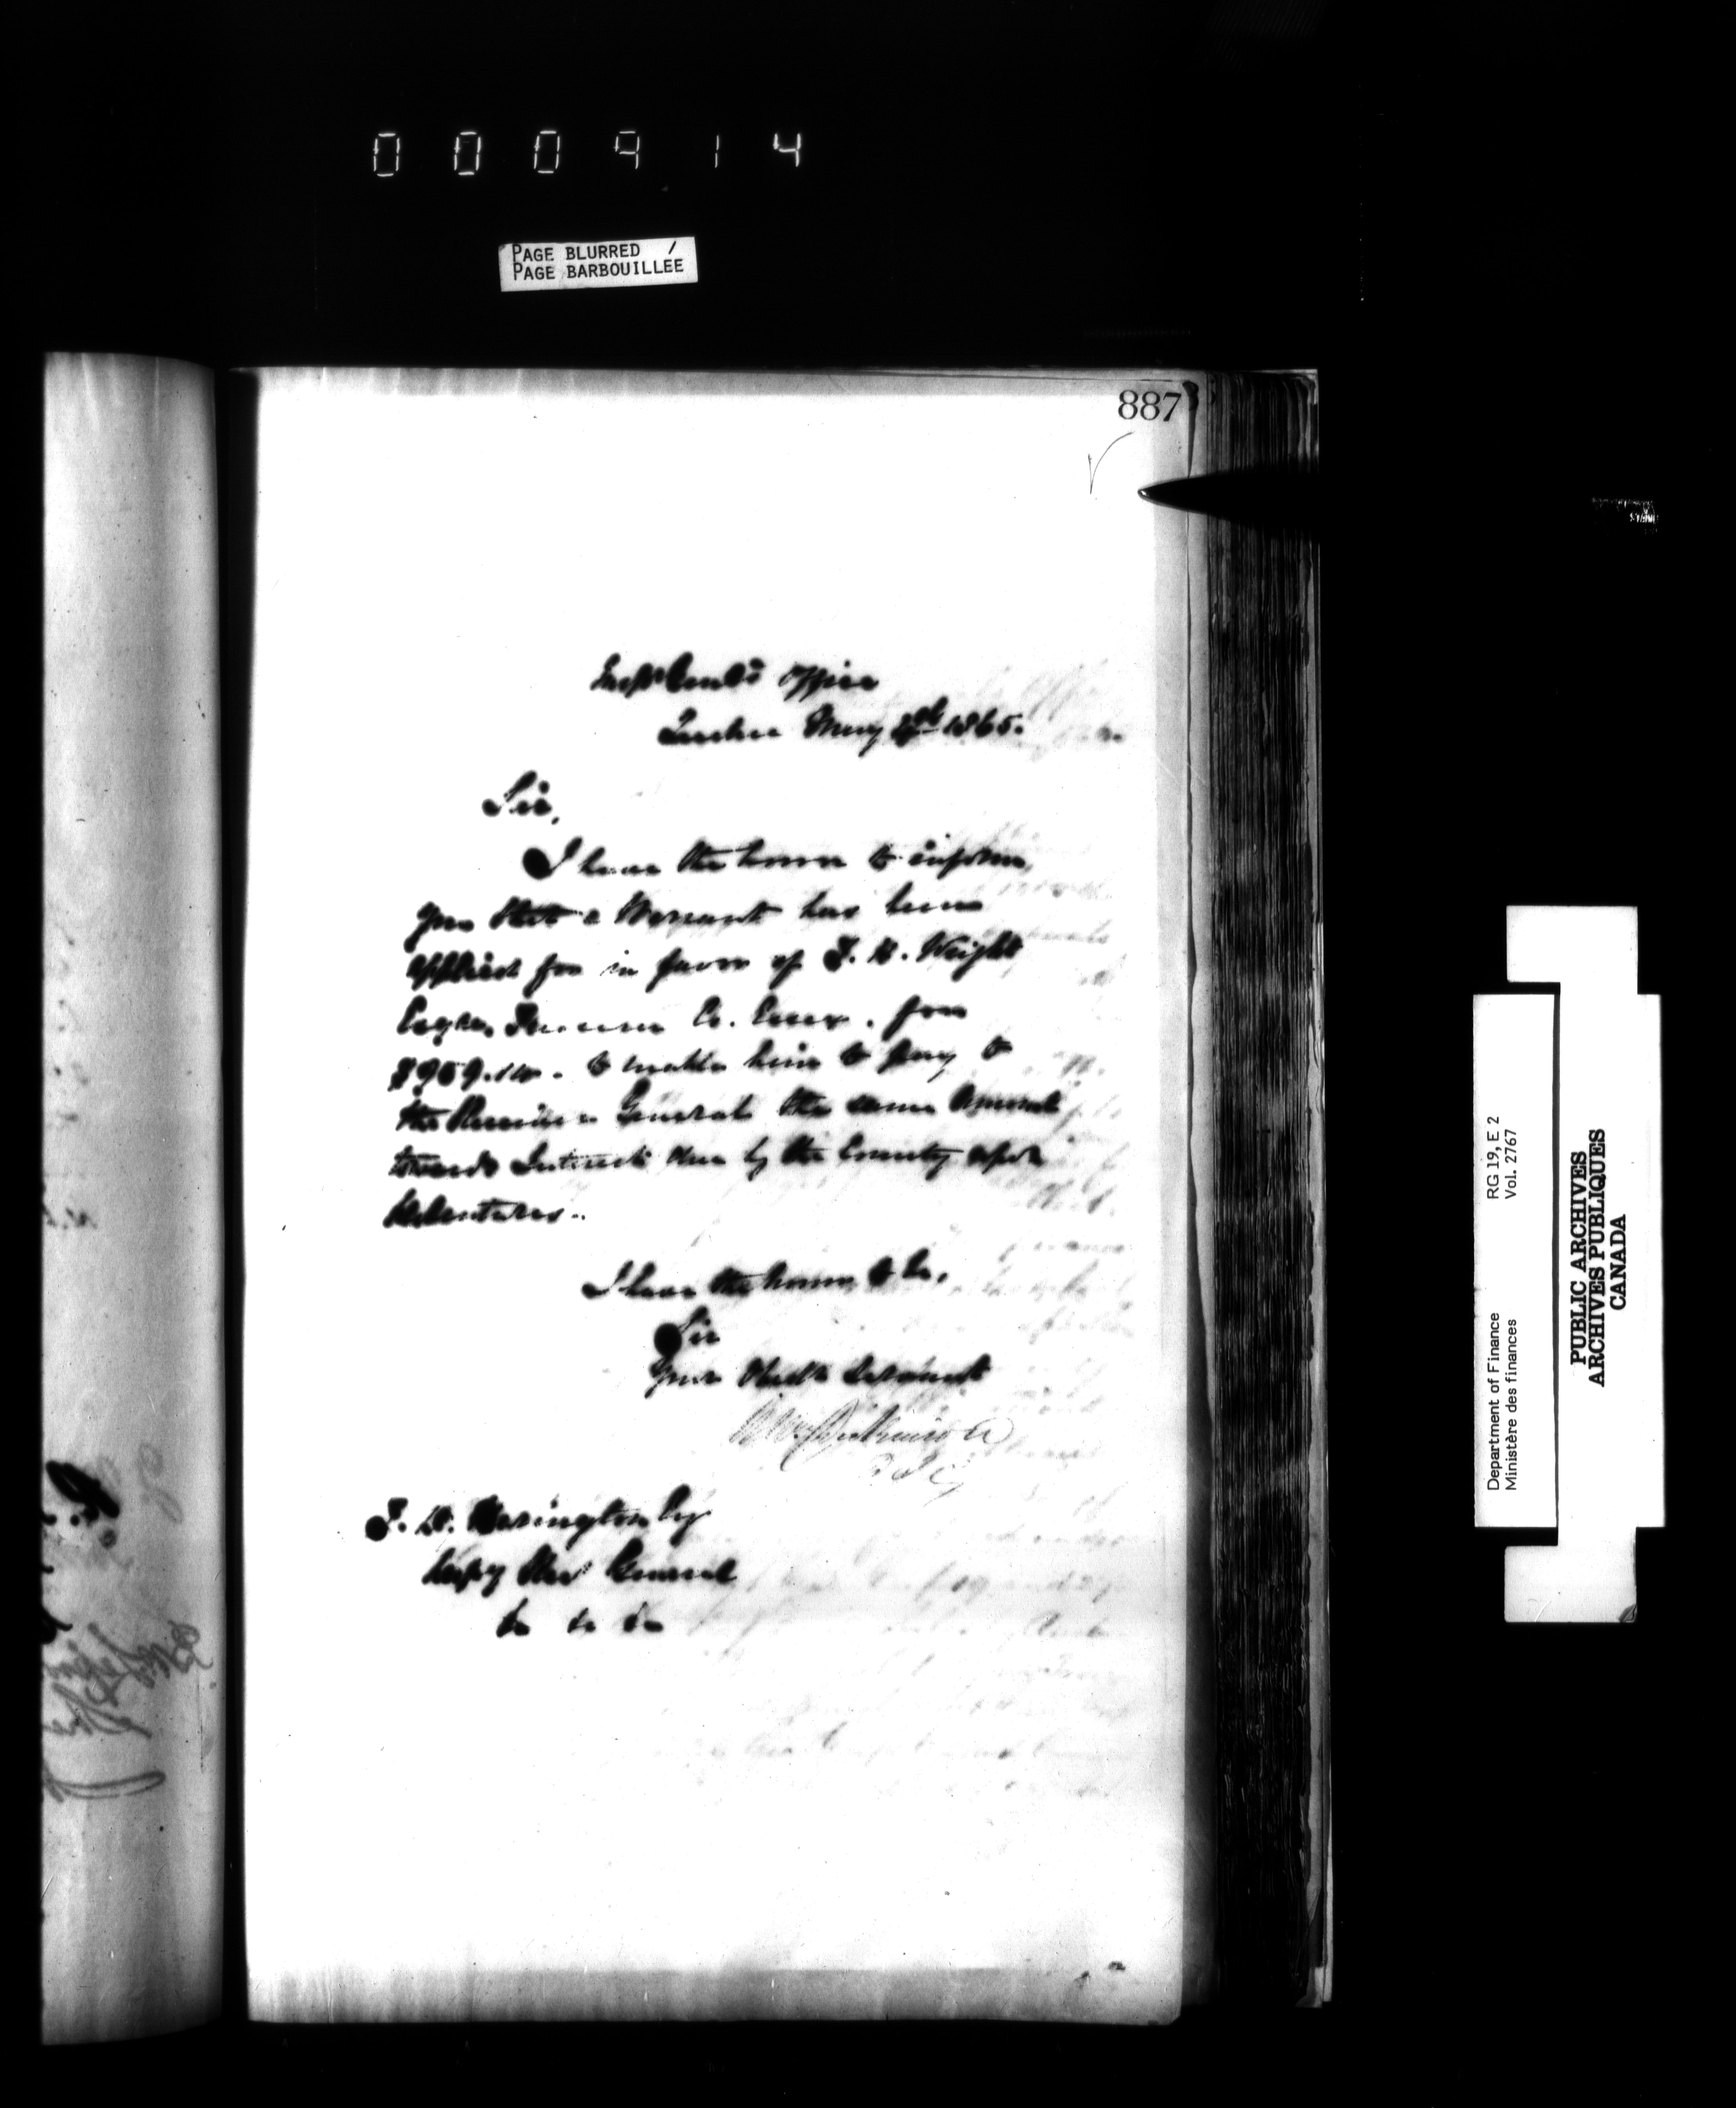 000914
PAGE BLURRED /
PAGE BARBOUILLÉE
887
Insp Genl's Office
Quebec May 1865.
Sir,
I have the honor to inform
you that a Warrant has been
applied for in favor of T. H. Wright
Esqre, Treasurer Co. Essex. for
$969. to enable him to pay to
the Receiver General the same Amount
towards Interest due by the County upon
Debentures..
I have the honor to be,
Sir
Your Obedt Servant
Wm Dickinson
T. D. Harington Esq
Depy Recr General
&c &c &c
Department of Finance RG 19, E 2
Ministère des finances Vol. 2767
PUBLIC ARCHIVES
ARCHIVES PUBLIQUES
CANADA